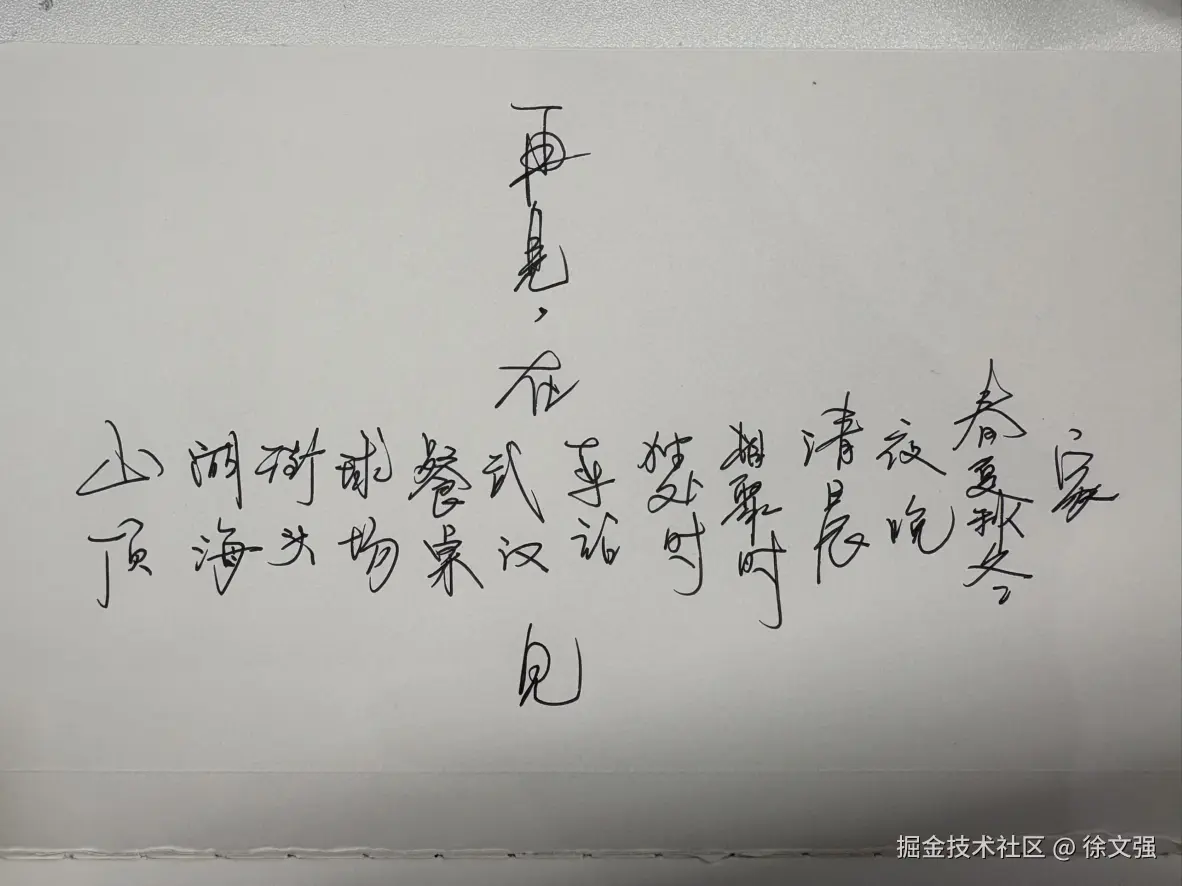 再见，在
山顶
湖海
街头
球场
餐桌
武汉
车站
独处时
相聚时
清晨
夜晚
春夏秋冬
家
见
掘金技术社区 @ 徐文强